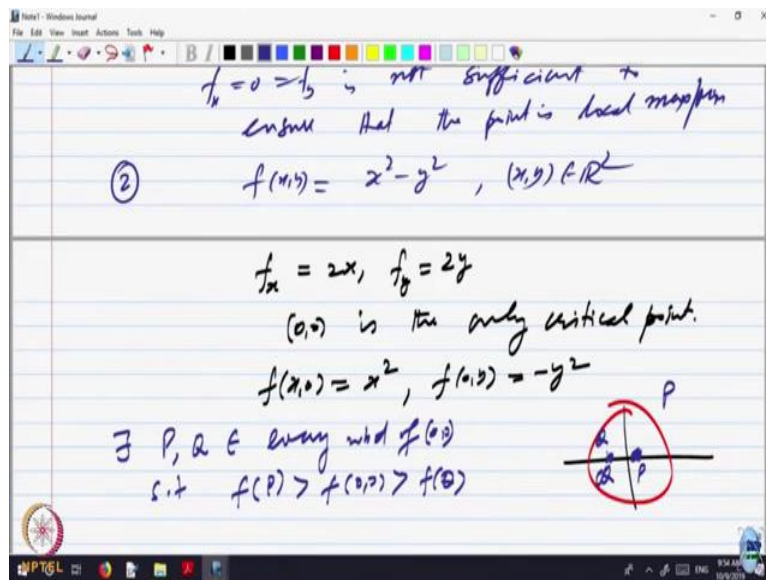 Note1 - Windows Journal
File Edit View Insert Actions Tools Help
B I
fx = 0 = fy is not sufficient to
ensure that the point is local max/min
② f(x,y) = x² - y² , (x,y) ∈ ℝ²
fx = 2x, fy = 2y
(0,0) is the only critical point.
f(x,0) = x², f(0,y) = -y²
P
∃ P, Q ∈ every nbd of (0,0)
s.t f(P) > f(0,0) > f(Q)
Q
Q P
NPTEL
ENG
9:54 AM
10/9/2019